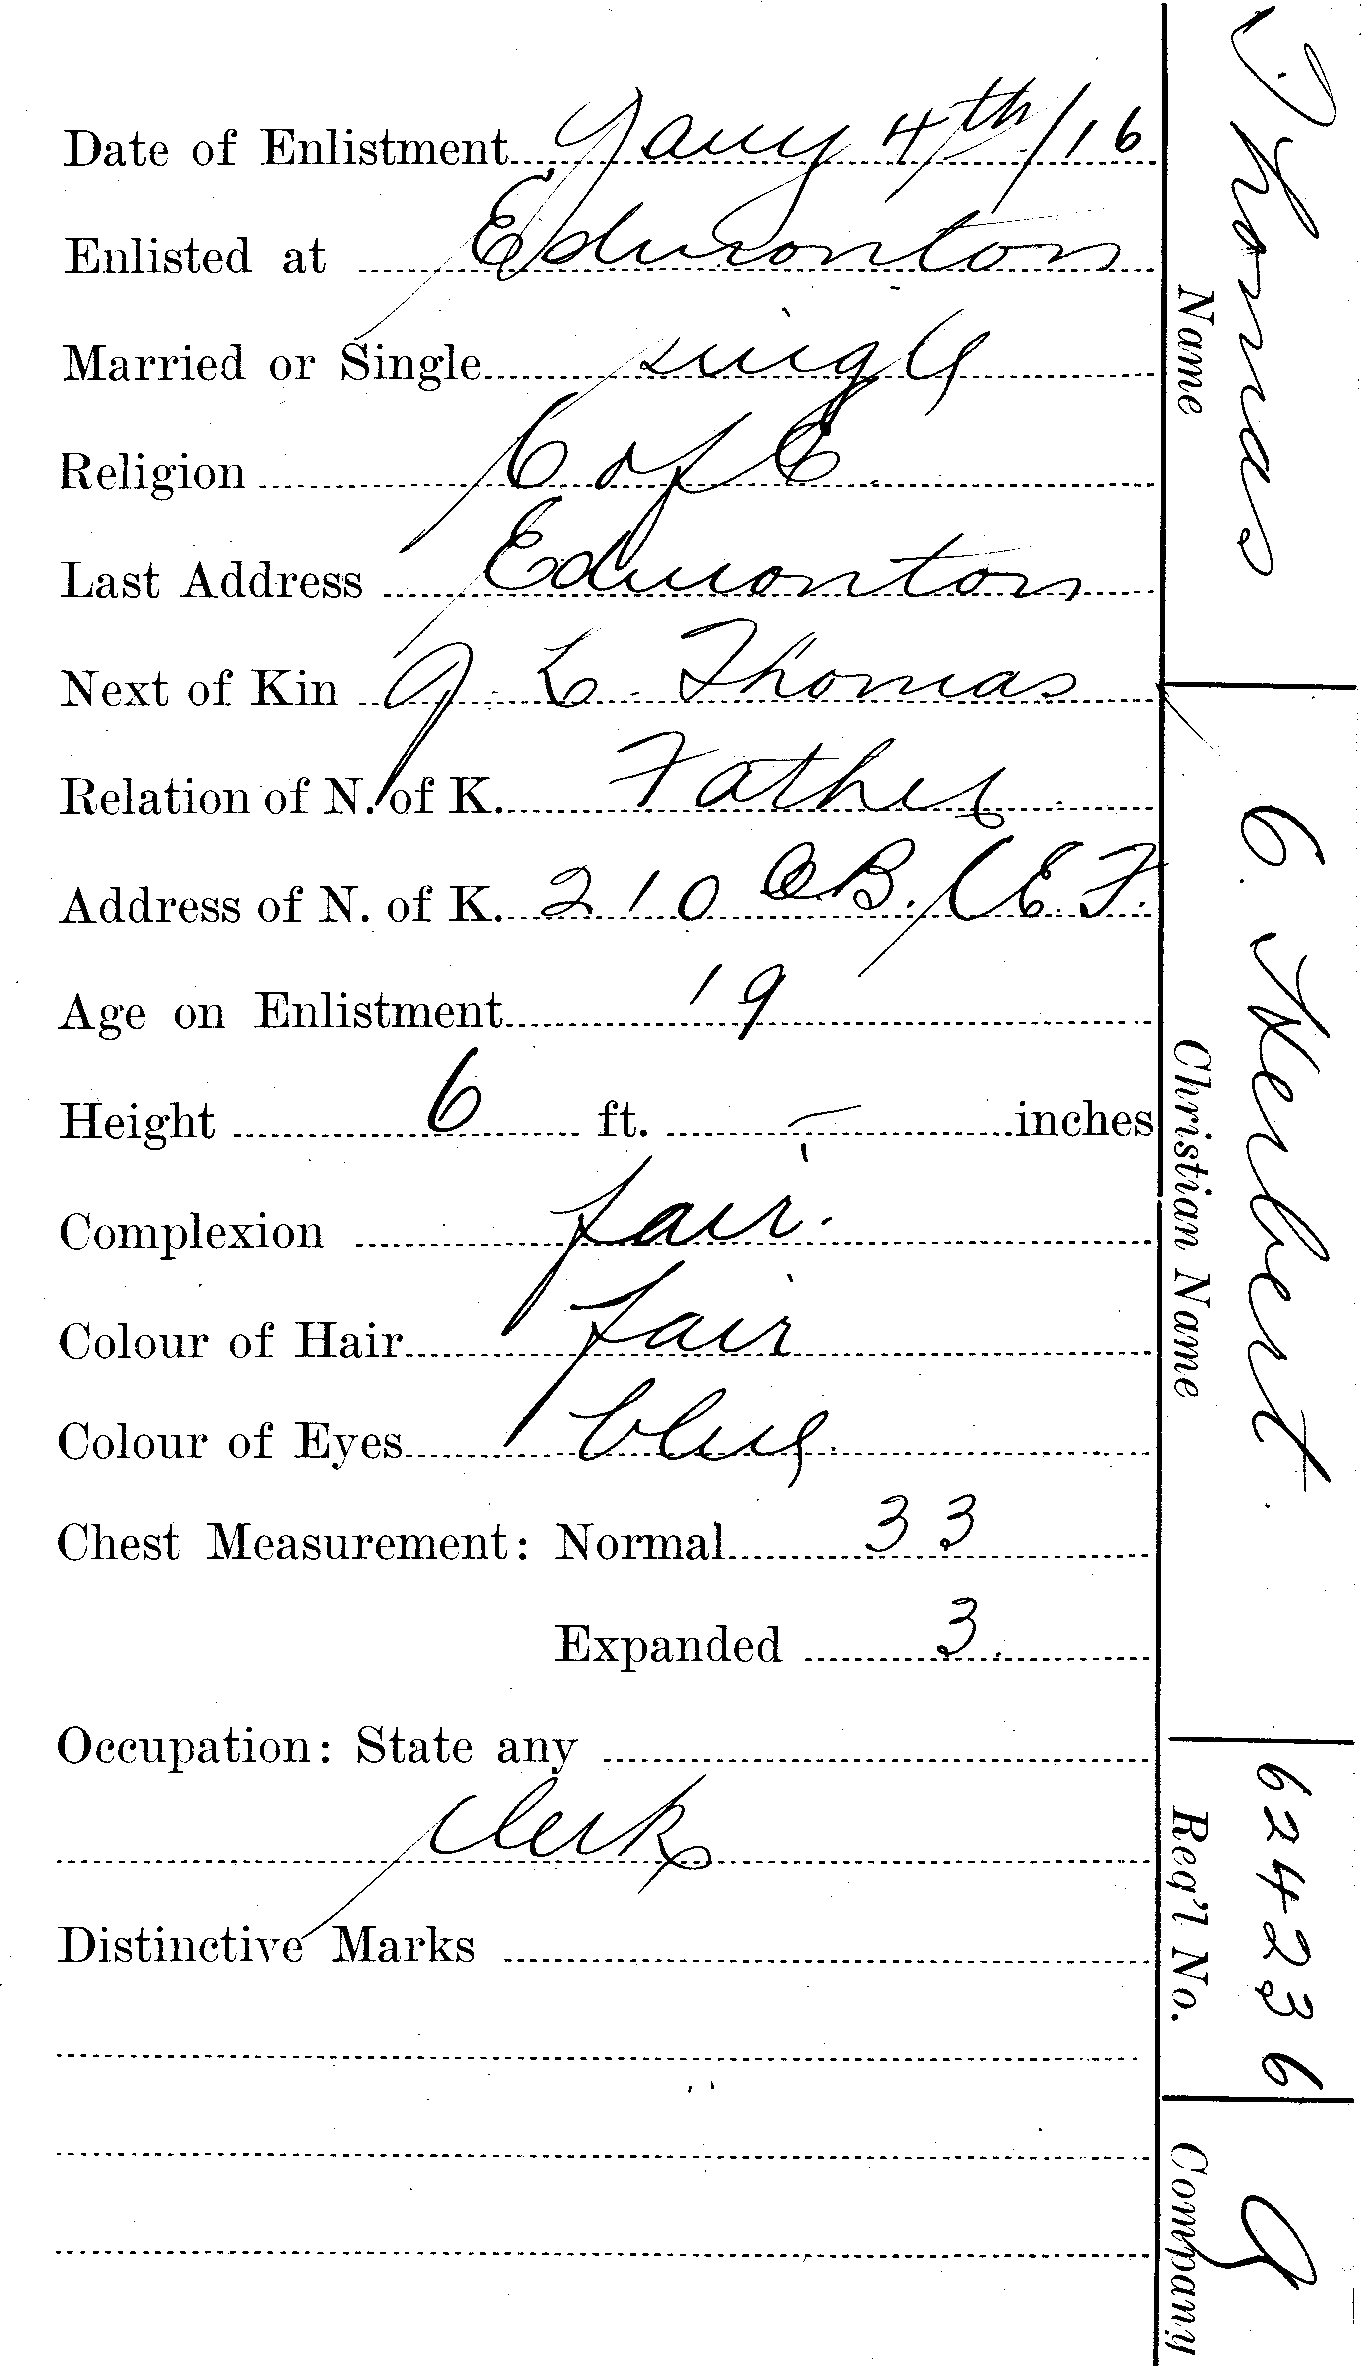 Date of Enlistment Jany 4th/16
Enlisted at Edmonton
Married or Single single
Religion C of E.
Last Address Edmonton
Next of Kin J. L. Thomas
Relation of N. of K. Father
Address of N. of K. 210 OB. CEF.
Age on Enlistment 19
Height 6 ft. - inches
Complexion fair.
Colour of Hair fair
Colour of Eyes blue
Chest Measurement: Normal 33
Expanded 3.
Occupation: State any
Clerk
Distinctive Marks
Thomas
Name
C. Herbert.
Christian Name
624236
Req'l No.
Company